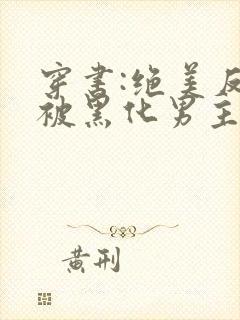 穿书:绝美反
被黑化男主
黄刑